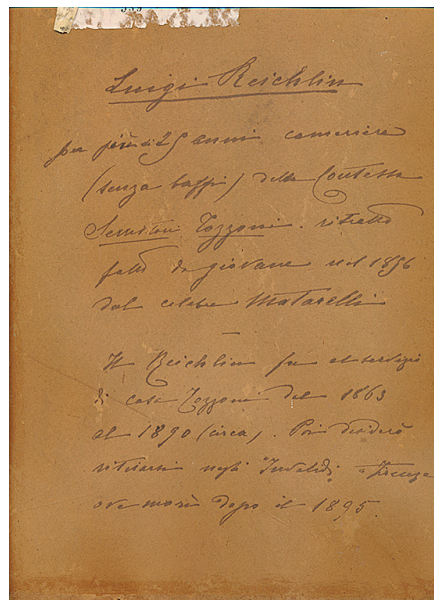 333
Luigi Reichlin
per più di 25 anni cameriere
(senza baffi) della Contessa
Tozzoni. ritratto
fatto da giovane nel 1856
dal celebre Matarelli
—
Il Reichlin fu al servizio
di casa Tozzoni dal 1863
al 1890 (circa). Poi desiderò
ritirarsi negli "Invalidi" a Firenze
ove morì dopo il 1895.